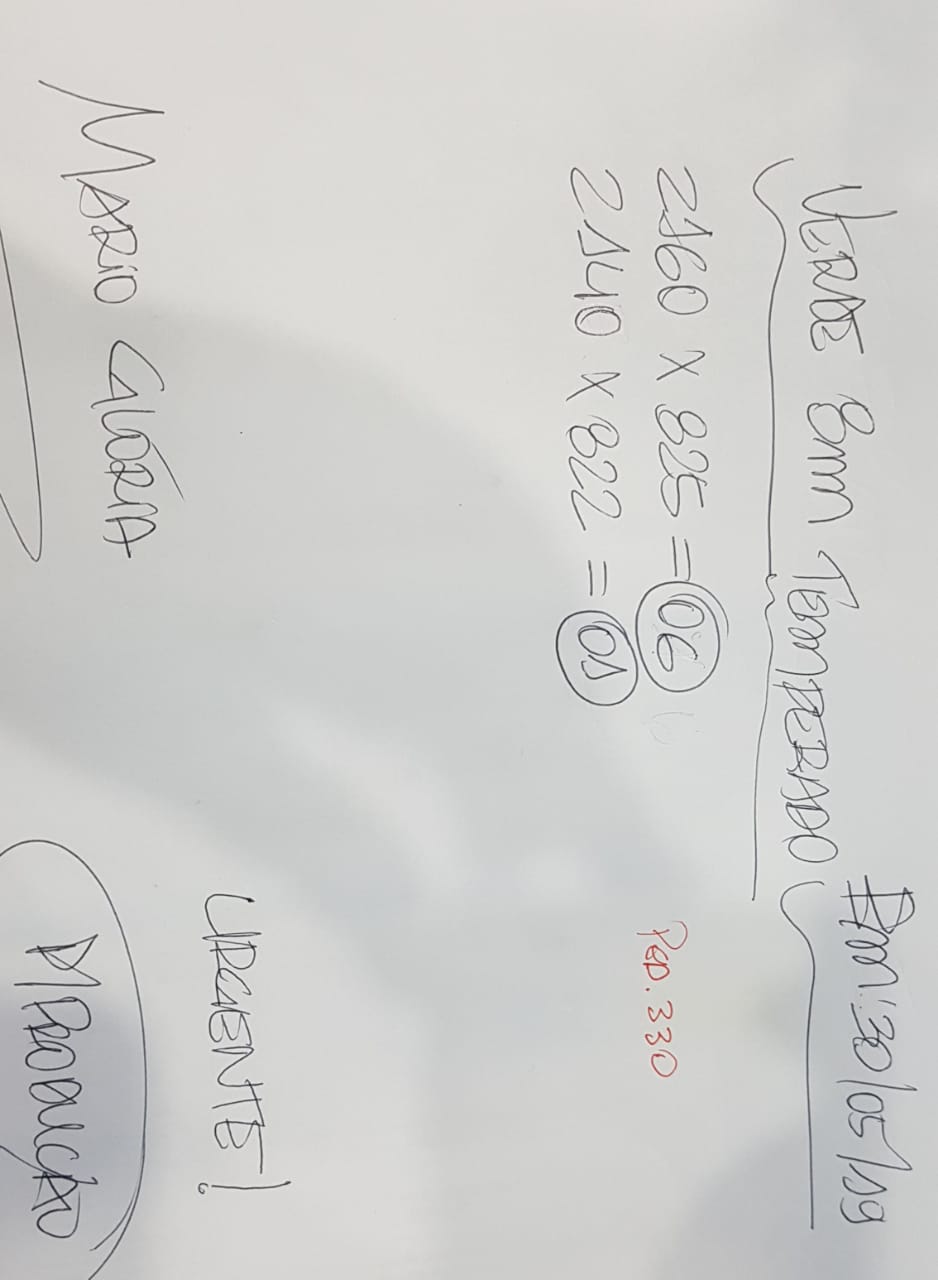 VERDE 8mm TEMPERADO Em: 30/05/19
2160 x 825 = 06
2140 x 822 = 01
PED. 330
URGENTE!
MARIO GLÓRIA
P/ PRODUÇÃO